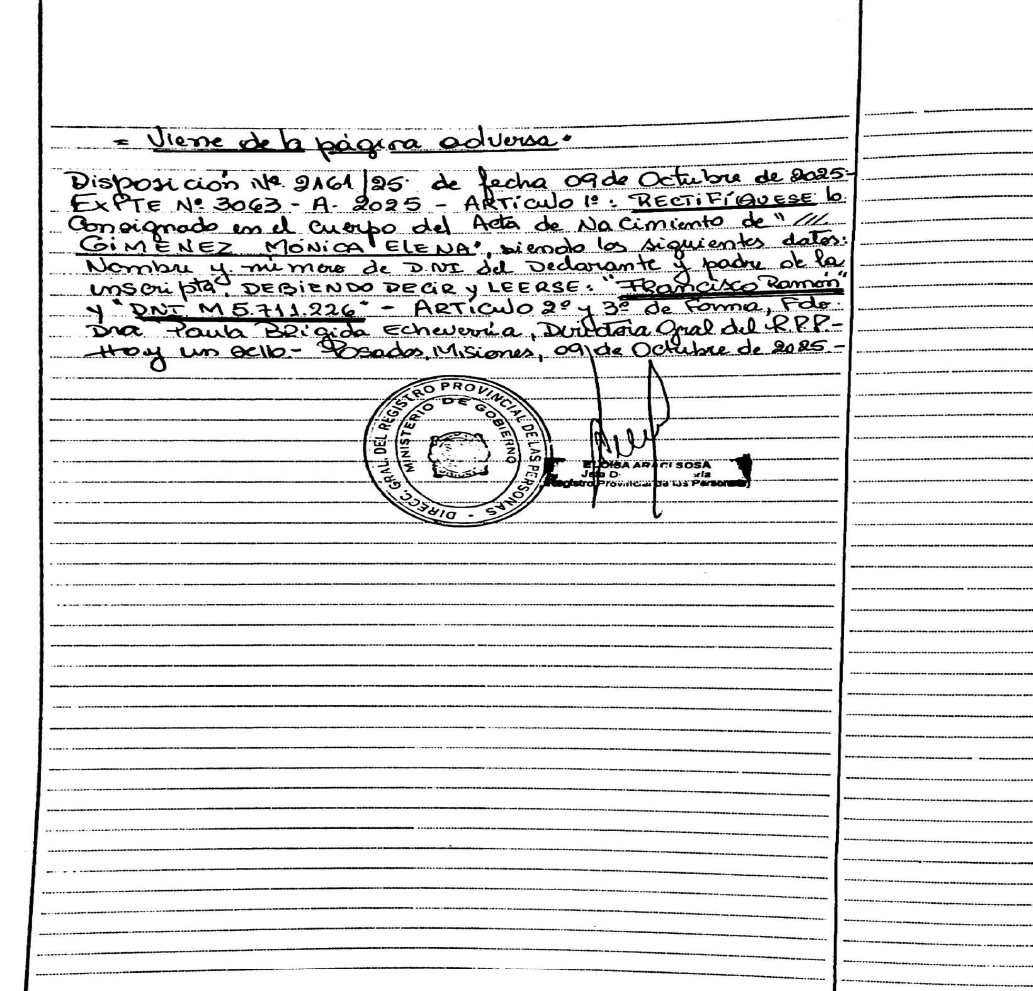 = Viene de la página adversa.
Disposición Nº 2161/25. de fecha 09 de Octubre de 2025-
EXPTE Nº 3063 - A. 2025 - ARTICULO 1º: RECTIFÍQUESE lo
Consignado en el cuerpo del Acta de Nacimiento de "///
GIMENEZ MÓNICA ELENA", siendo los siguientes datos:
Nombre y número de D.NI del Declarante y padre de la
inscripta, DEBIENDO DECIR y LEERSE: "FRancisco Ramón"
y "DNI M 5.711.226" - ARTICULO 2º y 3º de Forma, Fdo:
Dra. Paula BRigida Echeverría, Directora Gral del R.P.P-
Hay un sello.- Posadas, Misiones, 09 de Octubre de 2025-
DIRECC. GRAL. DEL REGISTRO PROVINCIAL DE LAS PERSONAS -
MINISTERIO DE GOBIERNO
ELOISA ARACI SOSA
Registro Provincial de las Personas